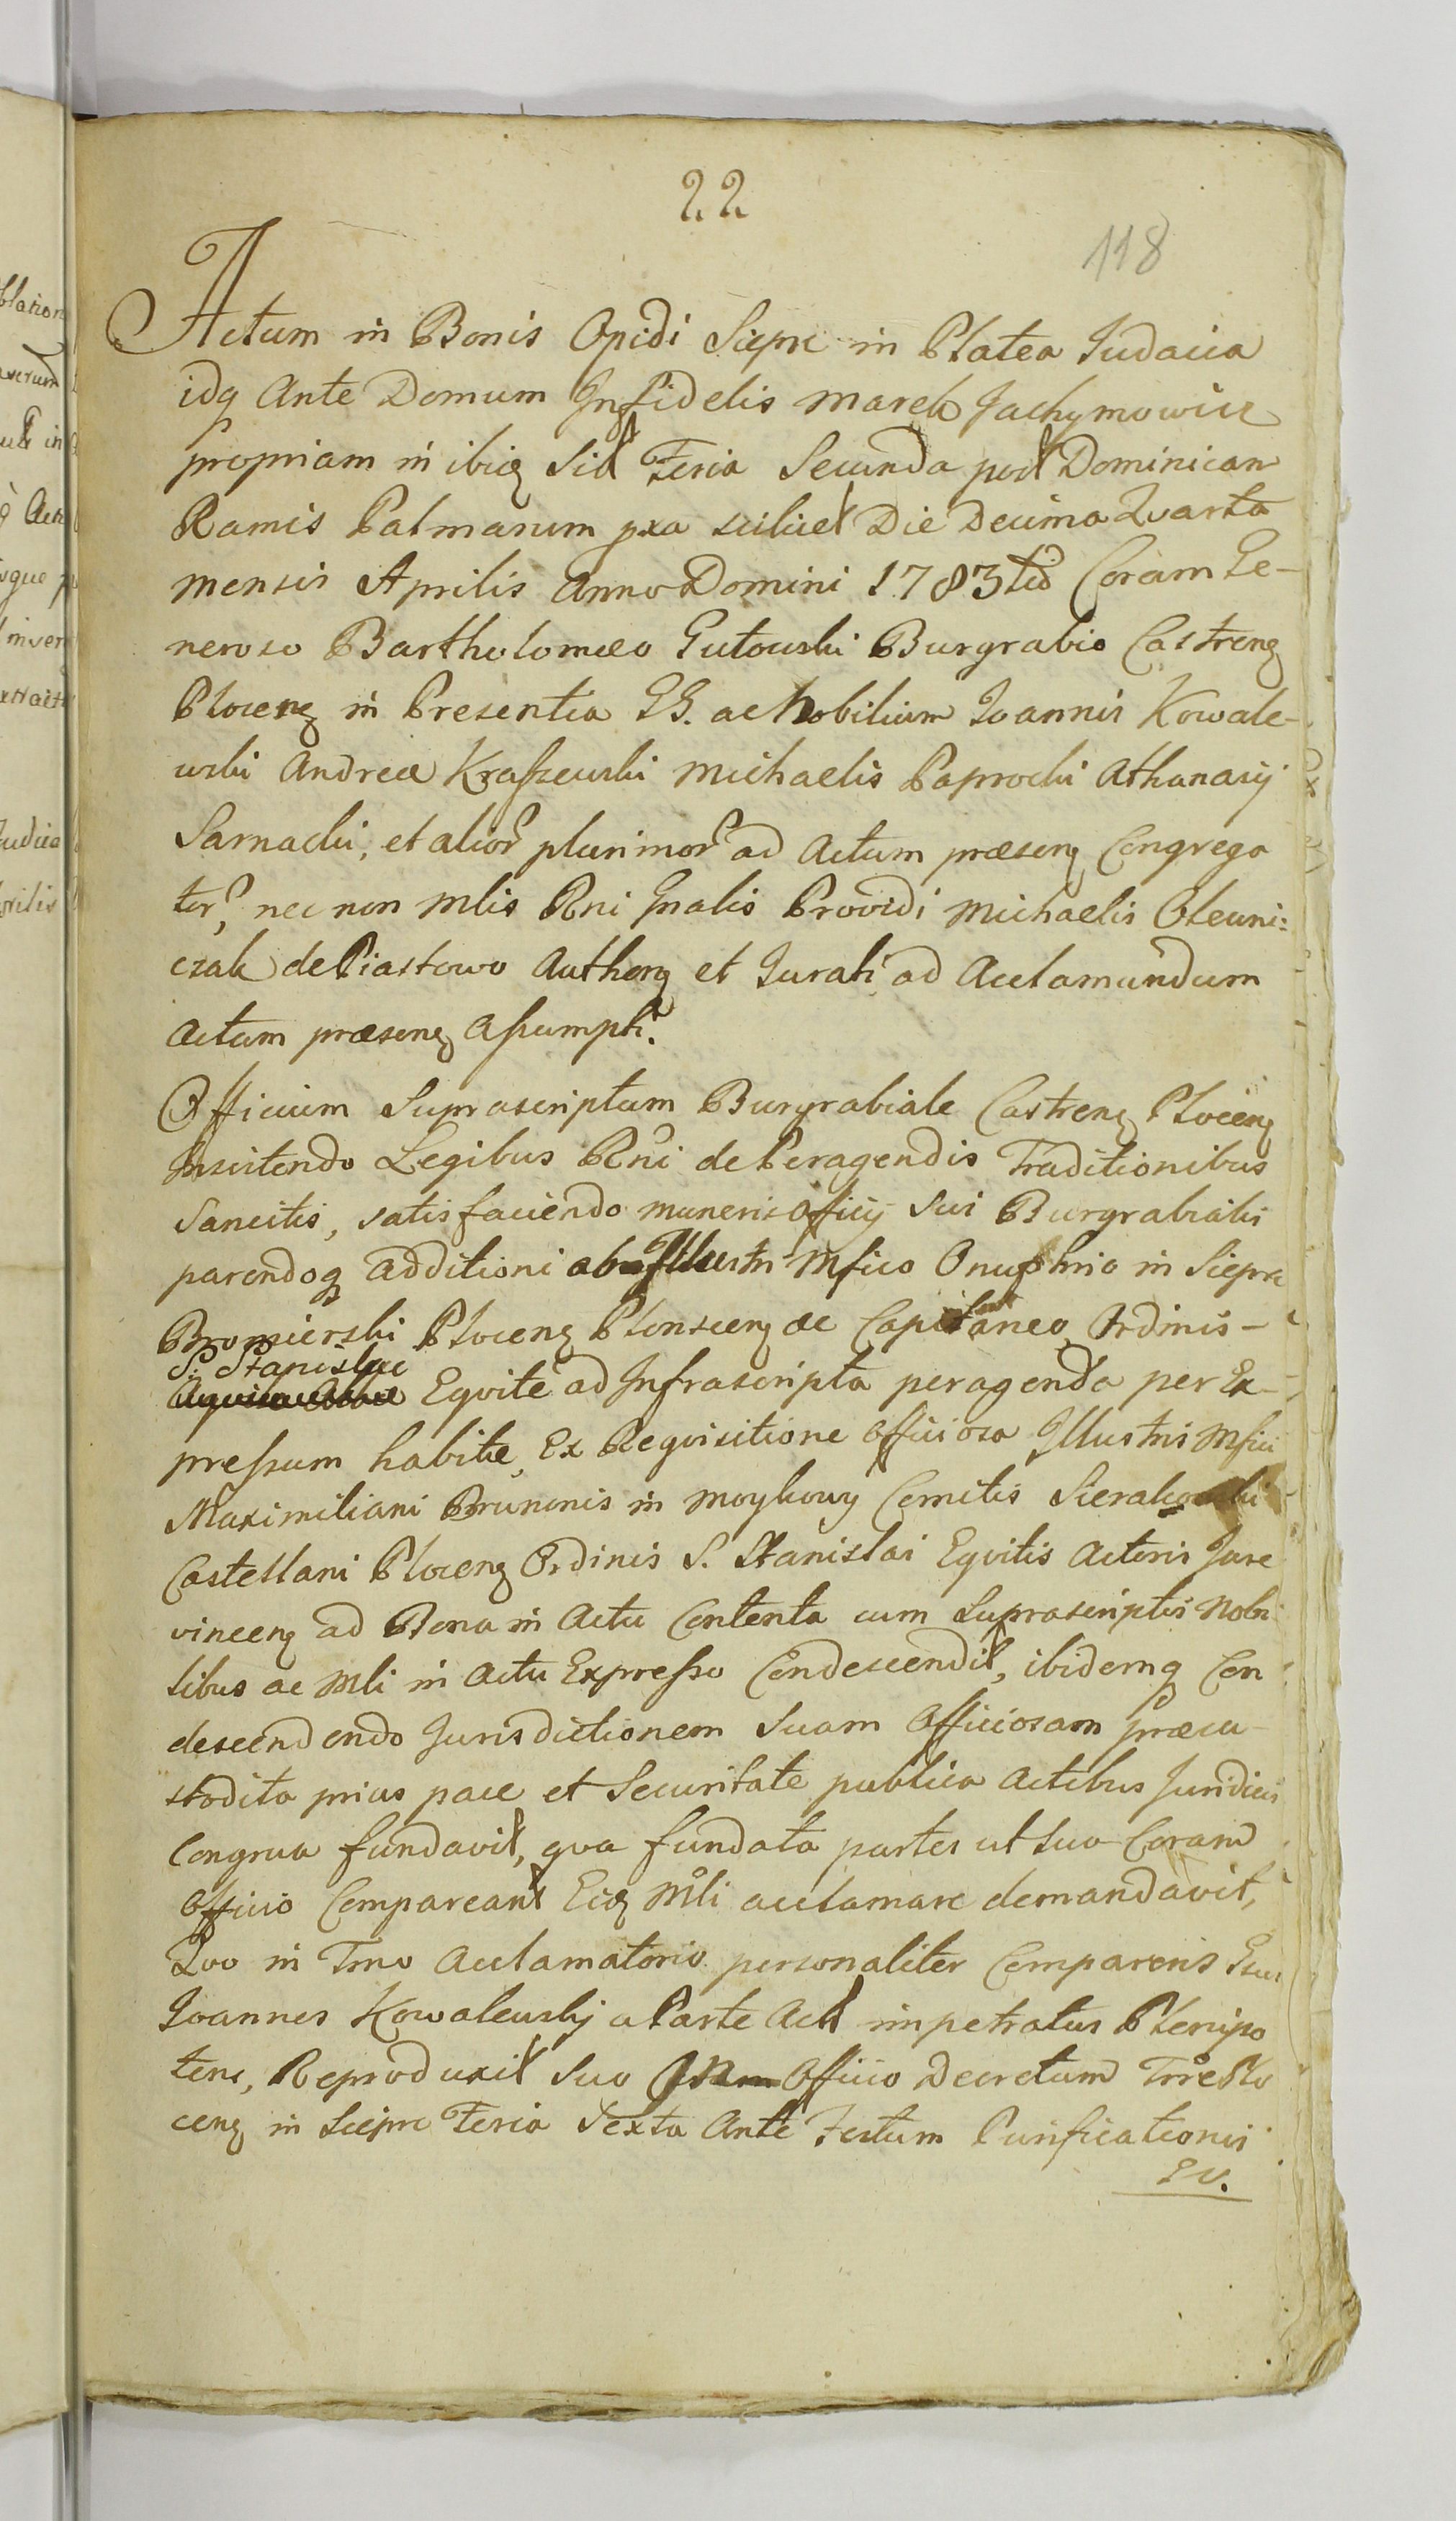 22
118
Actum in Bonis Opidi Siepre in Platea Judaica
idq Ante Domum Infidelis Marek Jachymowicz
propriam in ibiq Sid Feria Secunda post Dominicam
Ramis Palmarum pxa scilicet Die Decima Quarta
mensis Aprilis Anno Domini 1783tio Coram Ge-
neroso Bartholomæo Gutowski Burgrabio Castrenq
Plocenq in Presentia GG. ac Nobilium Joannis Kowale-
wski Andreæ Kraszewski Michaelis Paprocki Athanasij
Sarnacki, et alior plurimor ad Actum præsenq Congrega
tor, nec non Mlis Rni Gnalis Providi Michaelis Olewni-
czak de Piastowo Authenq et Jurati ad Acclamandum
Actum præsenq Assumpti.
Officium Suprascriptum Burgrabiale Castrenq Plocenq
Insistendo Legibus Rni de Peragendis Traditionibus
Sancitis, satisfaciendo muneris Officij sui Burgrabialis
parendoq additioni ab Illustri Mfico Onuphrio in Siepre
Bromierski Plocenq Plonscenq &c Capitaneo Ordinis-
S. Stanislai
Equite ad Infrascripta peragenda per Ex-
pressum habitæ, Ex Requisitione Officiosa Illustris Mfici
Maximiliani Brunonis in Moykowy Comitis Sierakowski
Castellani Plocenq Ordinis S. Stanislai Equitis Actoris Jure
vincenq ad Bona in Actu Contenta cum Suprascriptis Nobi
libus ac Mli in Actu Expresso Condescendit, ibidemq Con
descendendo Jurisdictionem Suam Officiosam præcu-
stodita prius pace et Securitate publica Actibus Juridicis
Congrua fundavit, qva fundata partes ut suo Coram
Officio Compareant Eidq Mli acclamare demandavit,
Qvo in Tmo Acclamatorio personaliter Comparens Gsus
Joannes Kowalewskj a Parte Act impetratus Plenipo
tens, Reproduxit Suo Officio Decretum Trre Plo
cenq in Siepre Feria Sexta Ante Festum Purificationis
EV.